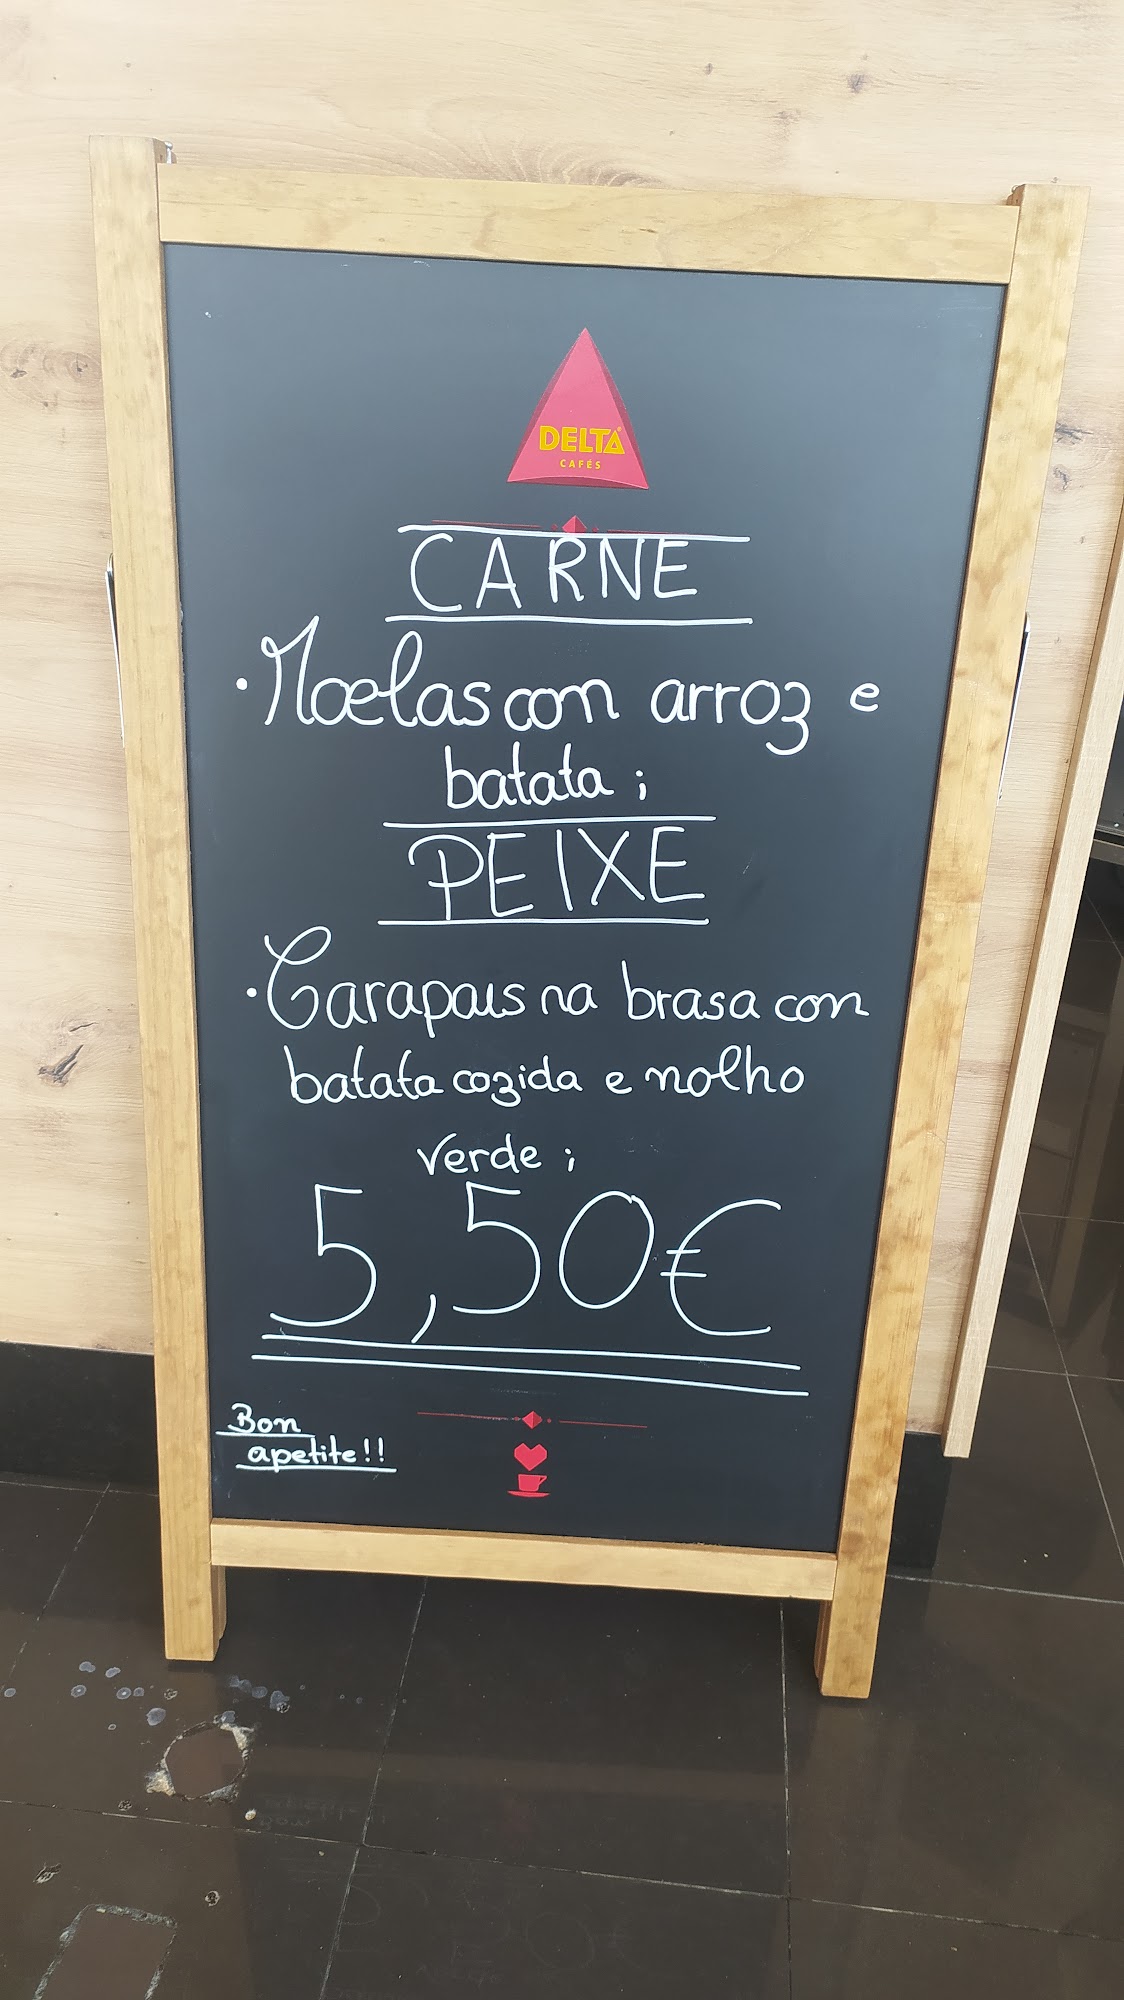 DELTA
CAFÉS
CARNE
· Moelas com arroz e
batata ;
PEIXE
· Carapaus na brasa com
batata cozida e molho
verde ;
5,50€
Bon
apetite!!